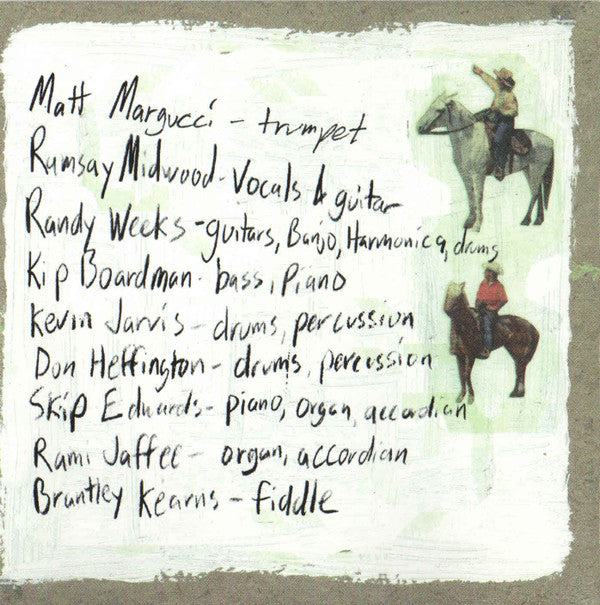 Matt Margucci - trumpet
Ramsay Midwood - Vocals & guitar
Randy Weeks - guitars, Banjo, Harmonica, drums
Kip Boardman - bass, Piano
Kevin Jarvis - drums, percussion
Don Heffington - drums, percussion
Skip Edwards - piano, organ, accordian
Rami Jaffee - organ, accordian
Brantley Kearns - fiddle